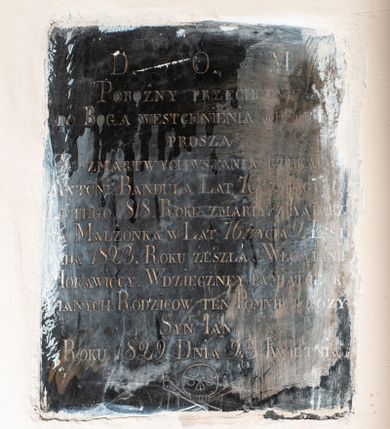 D. O. M
POBOŻNY PRZECHODNIU
DO BOGA WESTCHNIENIA
PROSZĄ
ZMARTWYCHWSTANIA CZEKAJĄ
ANTONI BANDUŁA LAT
LUTEGO 1818. ROKU ZMARŁY
MAŁŻONKA W LAT 76. ŻYCIA 2.
1823. ROKU ZESZŁA. WŁOŚCIANIE
MORAWICCY. WDZIĘCZNEY PAMIĄTCE
RODZICÓW TEN POMNIK POŁOŻYŁ
SYN IAN
ROKU 1829. DNIA 23 KWIETNIA